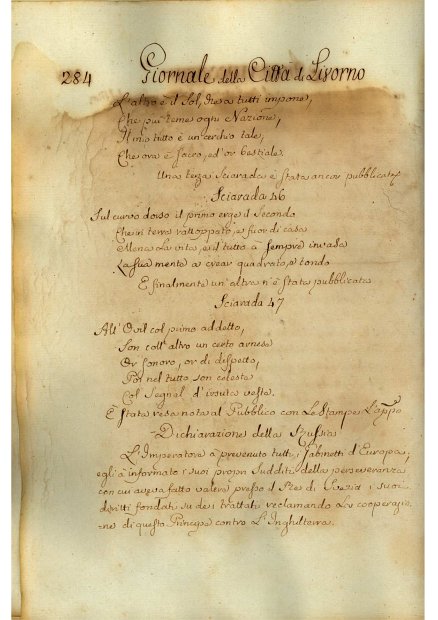 284 Giornale della Città di Livorno
L'altro è il Sol, che a tutti impone,
Che più teme ogni Nazione,
Il mio tutto è un cerchio tale,
Che ora è sacro, ed or bestiale.
Una terza Sciarada è stata ancor pubblicata
Sciarada 46
Sul curvo dorso il primo erge il Secondo
Che in terra rattoppato, e fuor di casa
Mena la vita, e il tutto à sempre invasa
La sua mente a crear quadrato, e tondo
E finalmente un'altra n'è stata pubblicata
Sciarada 47
All' Ovil col primo addetto,
Son coll' altro un certo arnese
Or sonoro, or di dispetto,
Poi nel tutto son celeste
Col Segnal d'irsuta veste.
È stata resa nota al Pubblico con Le Stampe L'
Dichiarazione della Russia
L'Imperatore à prevenuto tutti i Gabinetti d'Europa,
egli à informato i suoi propri Sudditi della perseveranza
con cui aveva fatto valere presso il Re di Svezia i suoi
diritti fondati su dei trattati reclamando la cooperazio
=ne di questo Principe contro L'Inghilterra.